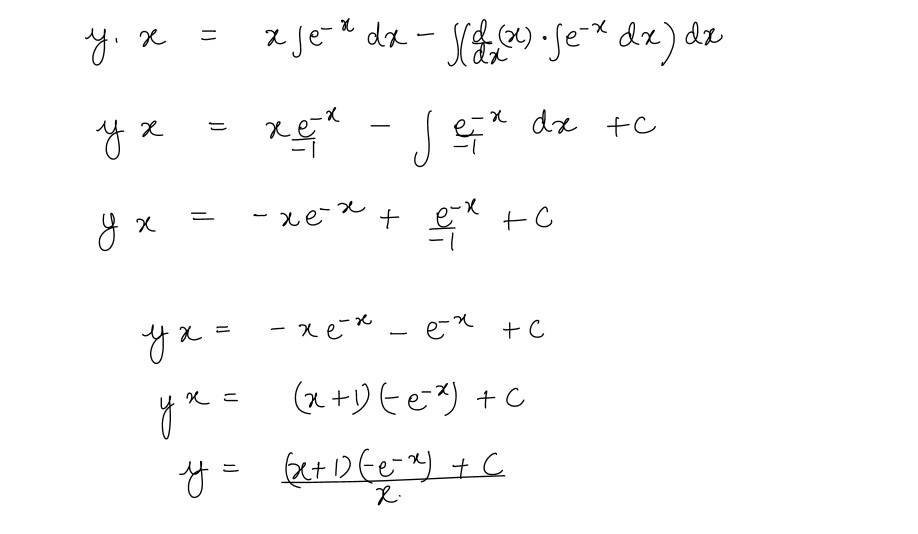 y. x = x ∫e^{-x} dx - ∫(d/dx (x) · ∫e^{-x} dx) dx
y x = x e^{-x}/-1 - ∫ e^{-x}/-1 dx + c
y x = - x e^{-x} + e^{-x}/-1 + C
y x = - x e^{-x} - e^{-x} + C
y x = (x+1) (-e^{-x}) + C
y = (x+1) (-e^{-x}) + C / x.